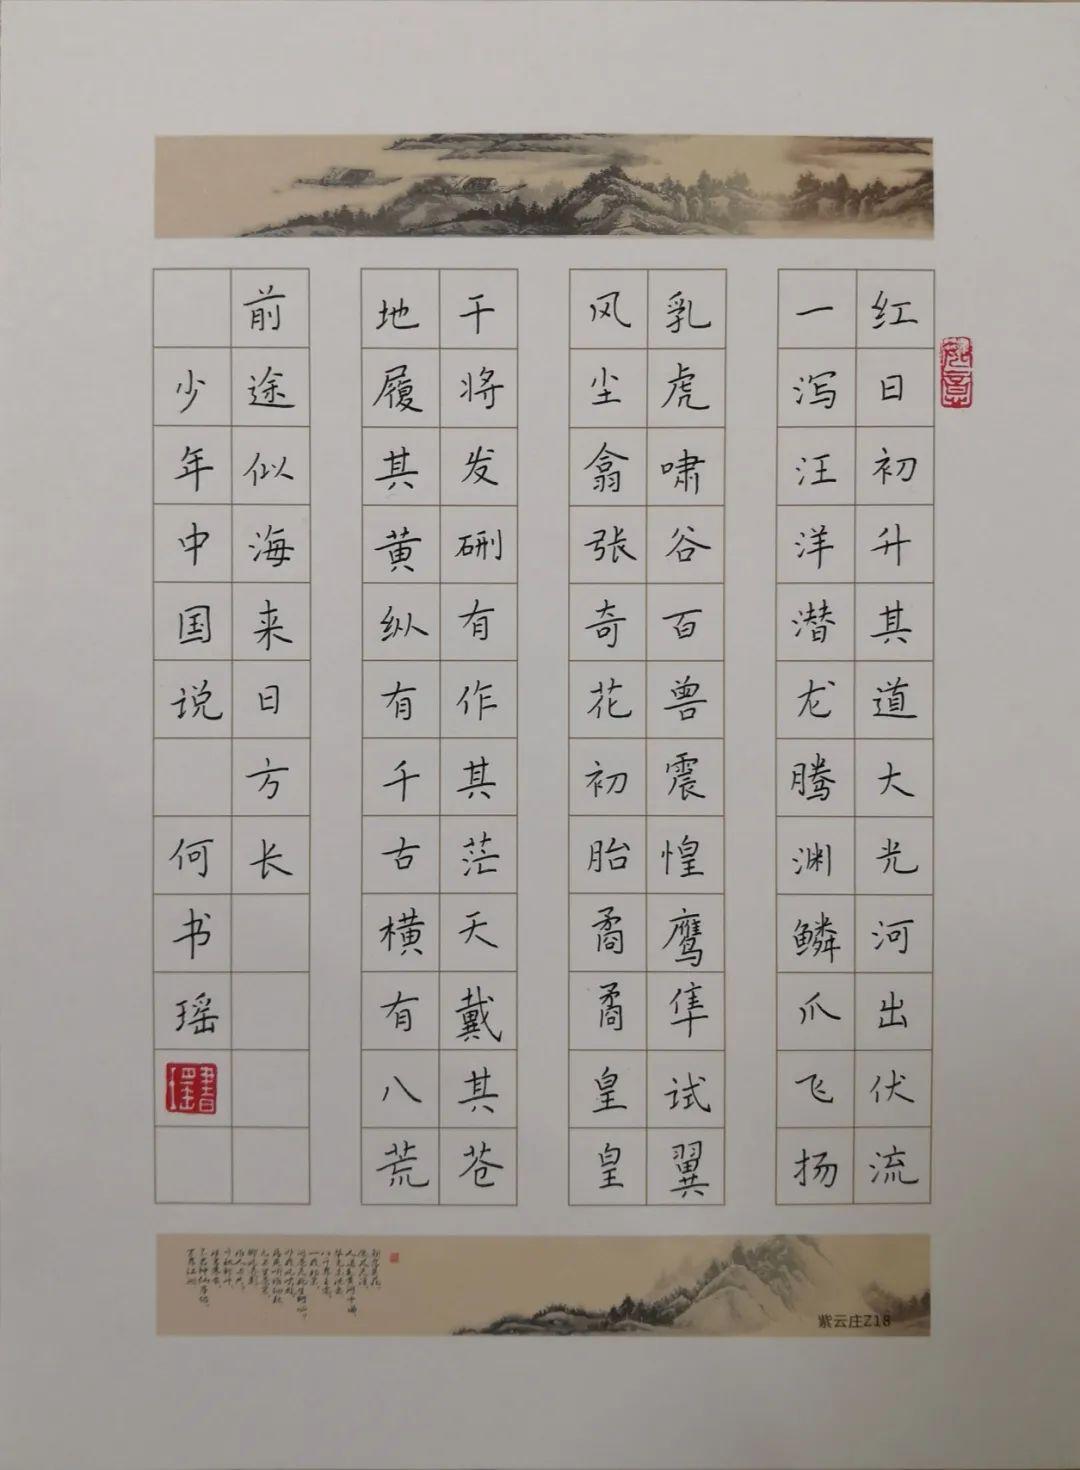 红日初升其道大光河出伏流
一泻汪洋潜龙腾渊鳞爪飞扬
乳虎啸谷百兽震惶鹰隼试翼
风尘翕张奇花初胎矞矞皇皇
干将发硎有作其茫天戴其苍
地履其黄纵有千古横有八荒
前途似海来日方长
少年中国说 何书瑶
紫云庄Z18